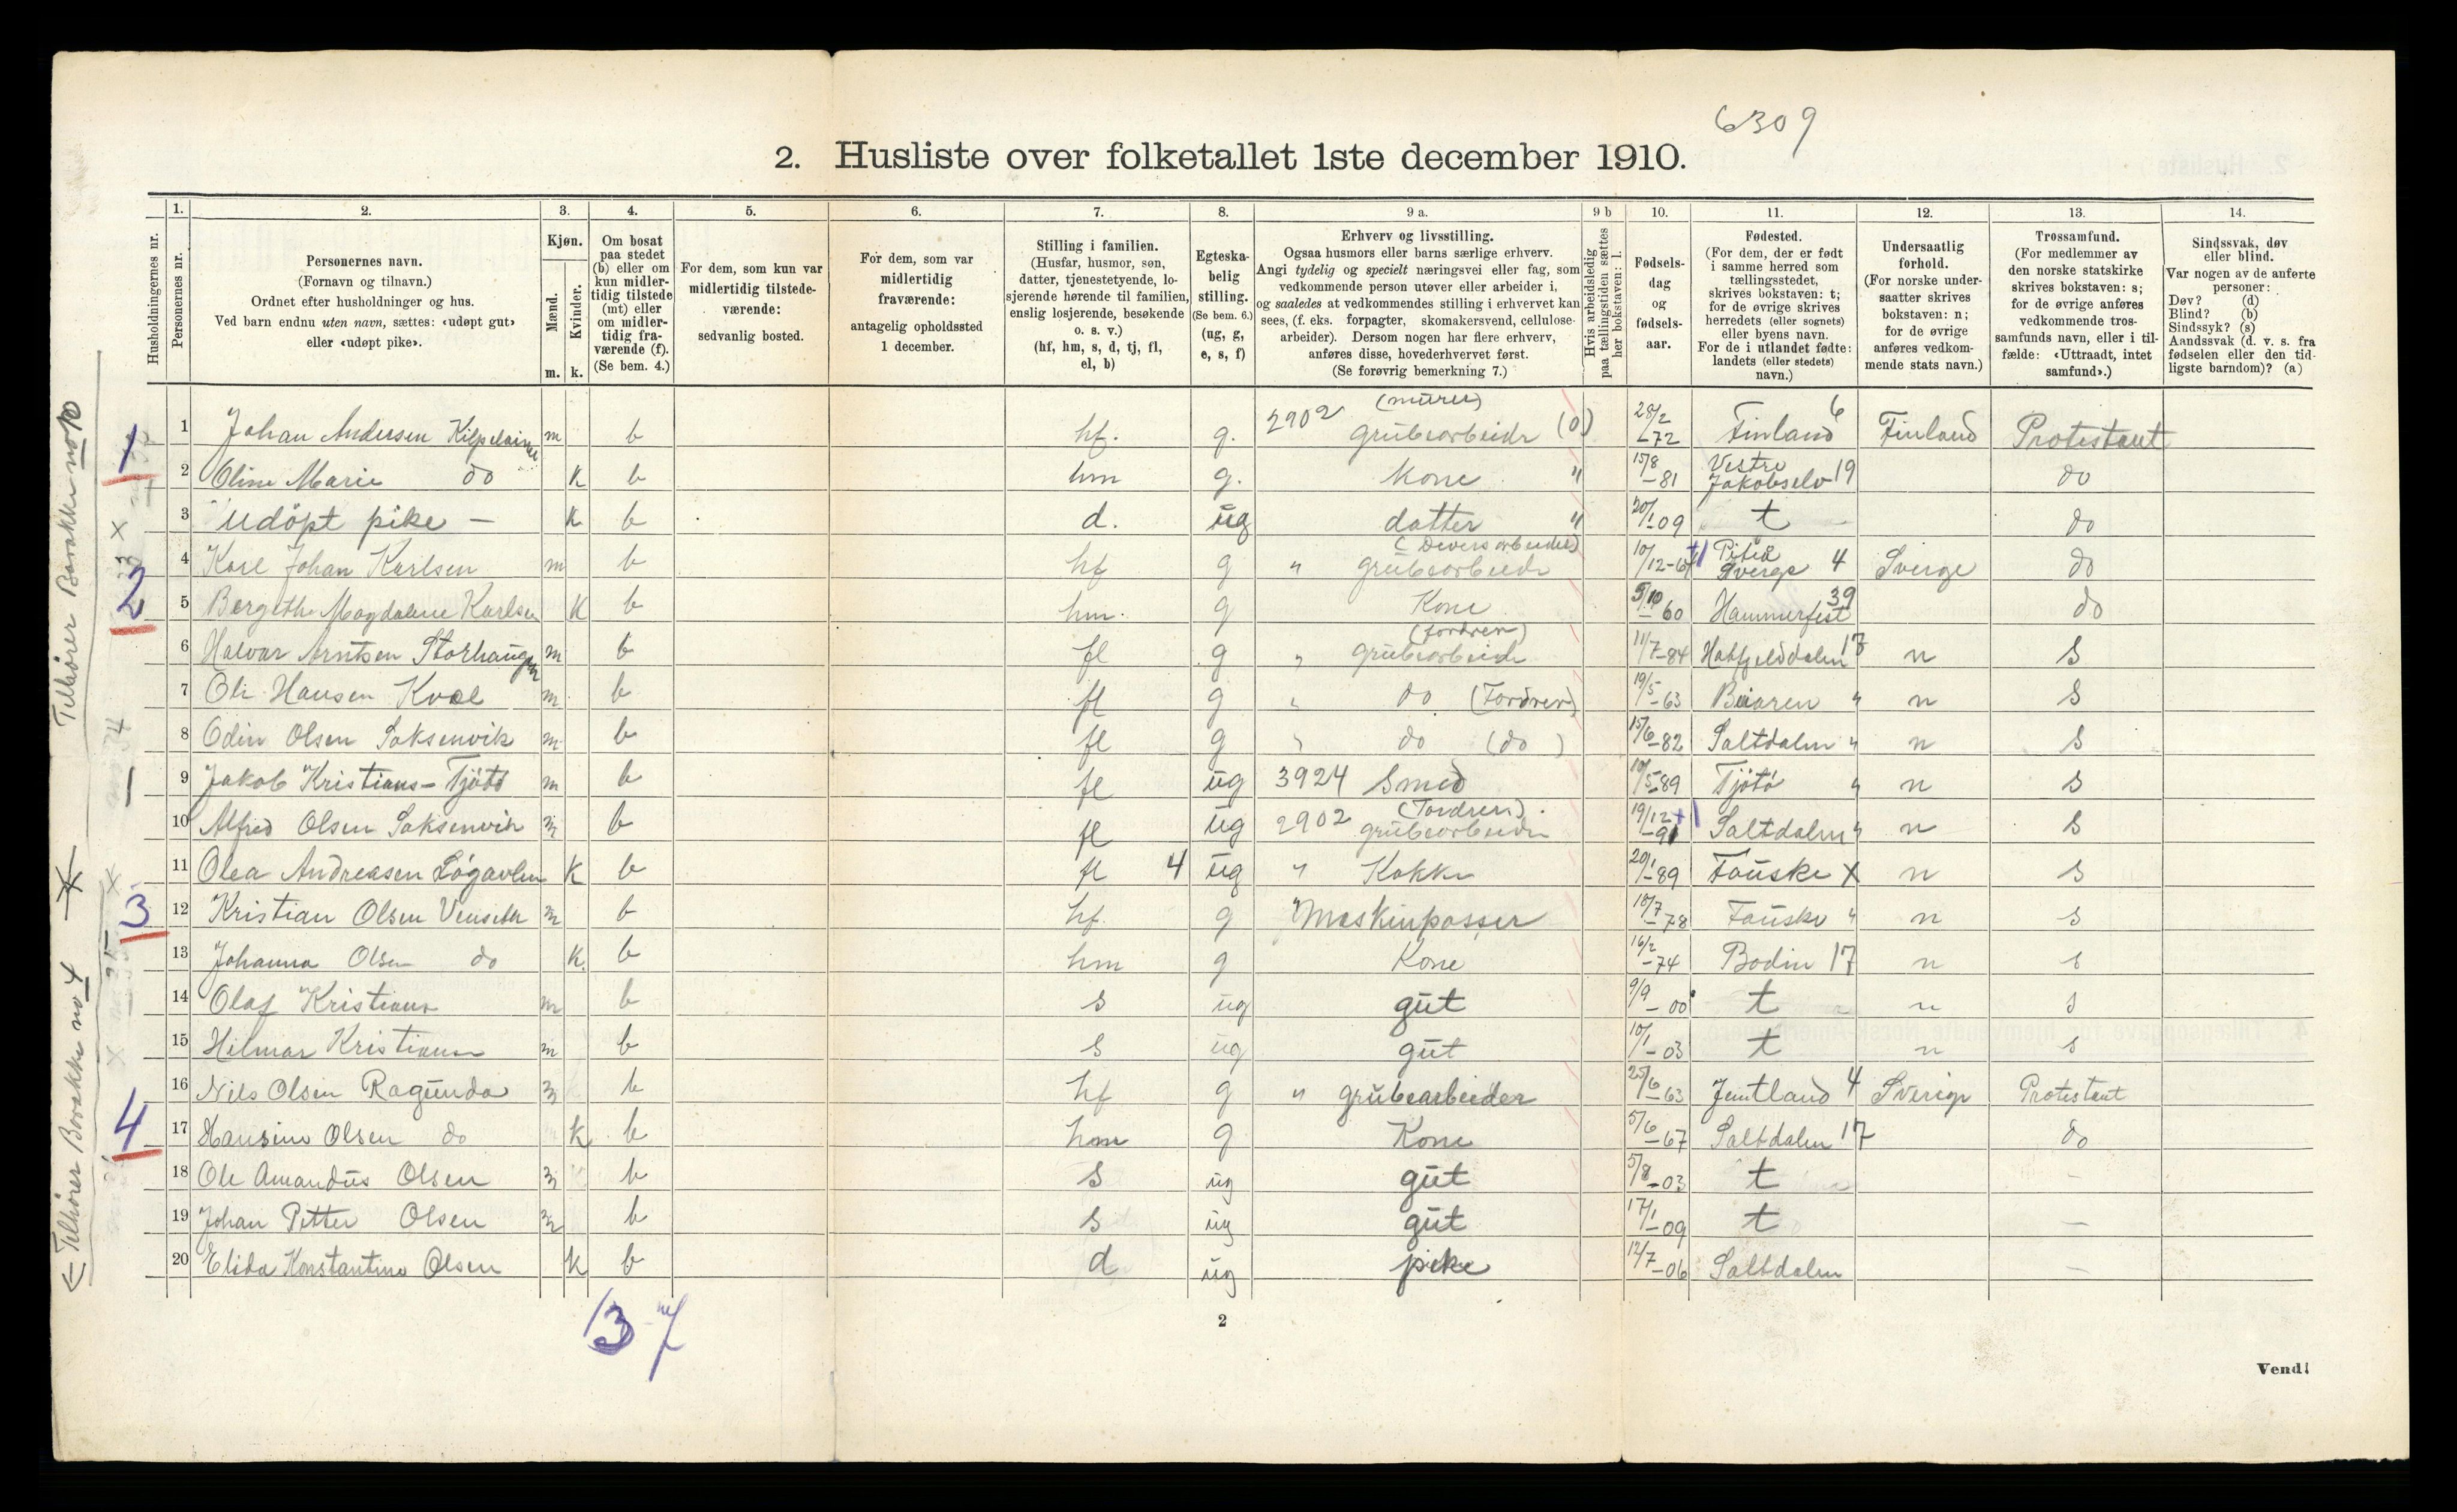 6309
2. Husliste over folketallet 1ste december 1910.
Husholdningernes nr.
1. Personernes nr.
2. Personernes navn.
(Fornavn og tilnavn.)
Ordnet efter husholdninger og hus.
Ved barn endnu uten navn, sættes: «udøpt gut»
eller «udøpt pike».
3. Kjøn.
Mænd. m.
Kvinder. k.
4. Om bosat
paa stedet
(b) eller om
kun midler-
tidig tilstede
(mt) eller
om midler-
tidig fra-
værende (f).
(Se bem. 4.)
5. For dem, som kun var
midlertidig tilstede-
værende:
sedvanlig bosted.
6. For dem, som var
midlertidig
fraværende:
antagelig opholdssted
1 december.
7. Stilling i familien.
(Husfar, husmor, søn,
datter, tjenestetyende, lo-
sjerende hørende til familien,
enslig losjerende, besøkende
o. s. v.)
(hf, hm, s, d, tj, fl,
el, b)
8. Egteska-
belig
stilling.
(Se bem. 6.)
(ug, g,
e, s, f)
9 a. Erhverv og livsstilling.
Ogsaa husmors eller barns særlige erhverv.
Angi tydelig og specielt næringsvei eller fag, som
vedkommende person utøver eller arbeider i,
og saaledes at vedkommendes stilling i erhvervet kan
sees, (f. eks. forpagter, skomakersvend, cellulose-
arbeider). Dersom nogen har flere erhverv,
anføres disse, hovederhvervet først.
(Se forøvrig bemerkning 7.)
9 b Hvis arbeidsledig
paa tællingstiden sættes
her bokstaven: l.
10. Fødsels-
dag
og
fødsels-
aar.
11. Fødested.
(For dem, der er født
i samme herred som
tællingsstedet,
skrives bokstaven: t;
for de øvrige skrives
herredets (eller sognets)
eller byens navn.
For de i utlandet fødte:
landets (eller stedets)
navn.)
12. Undersaatlig
forhold.
(For norske under-
saatter skrives
bokstaven: n;
for de øvrige
anføres vedkom-
mende stats navn.)
13. Trossamfund.
(For medlemmer av
den norske statskirke
skrives bokstaven: s;
for de øvrige anføres
vedkommende tros-
samfunds navn, eller i til-
fælde: «Uttraadt, intet
samfund».)
14. Sindssvak, døv
eller blind.
Var nogen av de anførte
personer:
Døv? (d)
Blind? (b)
Sindssyk? (s)
Aandssvak (d. v. s. fra
fødselen eller den tid-
ligste barndom)? (a)
1 1 Johan Andersen Kilpelainen m b hf. g. 2902 (murer) grubearbeider (0) 28/2 -72 Finland 6 Finland Protestant
2 Oline Marie do k b hm g. Kone " 15/8 -81 Vestre Jakobselv 19 do
3 udöpt pike - k b d. ug datter " 20/1 09 t do
2 4 Karl Johan Karlsen m b hf g " grubearbeider 10/12-67 Piteå Sverge 4 Sverge do
5 Bergethe Magdalene Karlsen k b hm. g Kone 5/10 60 Hammerfest 39 do
6 Halvar Arntsen Storhaugen m b fl g " (fordrer) grubearbeider 11/7-84 Hatfjelddalen 17 n s
7 Ole Hansen Kvæl m b fl g " do (Fordrer) 19/5 -63 Beiaren " n s
8 Odin Olsen Saksenvik m b fl g " do (do) 15/6-82 Saltdalen " n s
9 Jakob Kristians- Tjøtø m b fl ug 3924 Smed 10/5-89 Tjötö " n s
10 Alfred Olsen Saksenvik m b fl ug 2902 (Fordrer) grubearbeider 19/12 -91 Saltdalen " n s
11 Olea Andreasen Løgavlen k b fl 4 ug " Kokke 20/1-89 Fauske X n s
3 12 Kristian Olsen Venseter m b hf. g Maskinpasser 18/7 -78 Fauske " n s
13 Johanna Olsen do k. b hm g Kone 16/2 -74 Bodin 17 n s
14 Olaf Kristians m b s ug gut 9/9 -00 t n s
15 Hilmar Kristians m b s ug gut 10/1 -03 t n s
4 16 Nils Olsen Ragunda m b hf g " grubearbeider 25/6 -63 Jemtland 4 Sverige Protestant
17 Hansine Olsen do k b hm g Kone 5/6 -67 Saltdalen 17 do
18 Ole Amandus Olsen m b s ug gut 5/8 -03 t -
19 Johan Petter Olsen m b s ug gut 17/1 -09 t -
20 Elida Konstantine Olsen k b d ug pike 12/7 -06 Saltdalen -
Tilhører Barakke no 10
← Tilhører Barakke no 4
13 7
2
Vend!